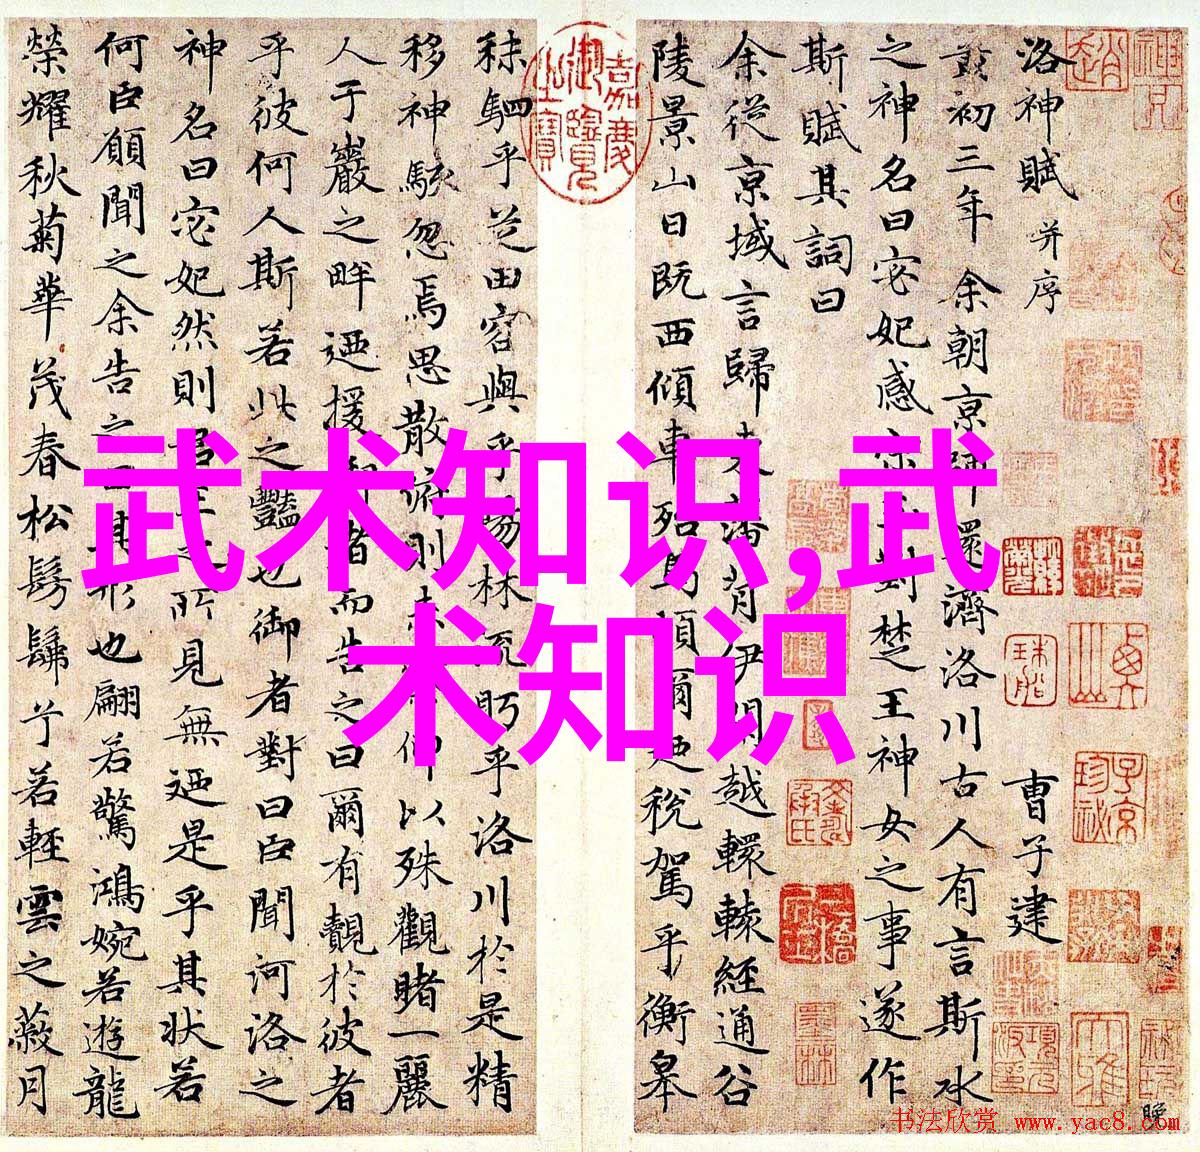 洛神賦 并序 曹子建
初三年余朝京師還濟洛川古人有言斯水
之神名曰宓妃感宋玉對楚王神女之事遂作
斯賦其詞曰
余從京域言歸東藩背伊闕越轘轅經通谷
陵景山日既西傾車殆馬煩爾迺稅駕乎衡皋
嘉慶御覽之寶
秣駟乎芝田容與乎楊林流眄乎洛川於是精
移神駭忽焉思散俯則未察仰以殊觀睹一麗
人于巖之畔迺援御者而告之曰爾有覿於彼者
乎彼何人斯若此之豔也御者對曰臣聞河洛之
神名曰宓妃然則君王之所見無迺是乎其狀若
何臣願聞之余告之曰其形也翩若驚鴻婉若遊龍
榮耀秋菊華茂春松髣髴兮若輕雲之蔽月
武术知识,武
术知识
书法欣赏 www.yac8.com